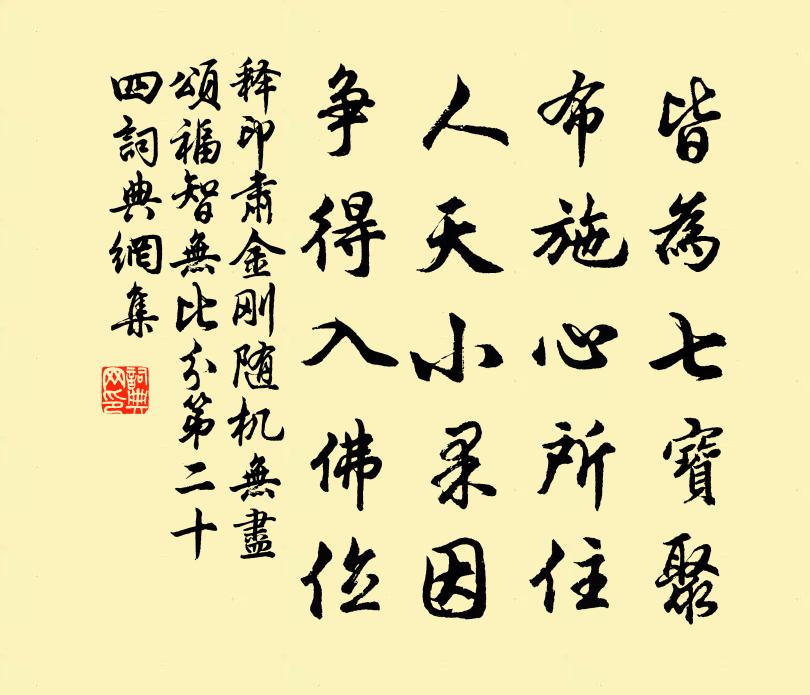 皆為七寳聚
布施心所住
人天小果因
争得入佛位
释印肃金刚随机無盡
頌福智無比分第二十
四詞典網集
詞典網印